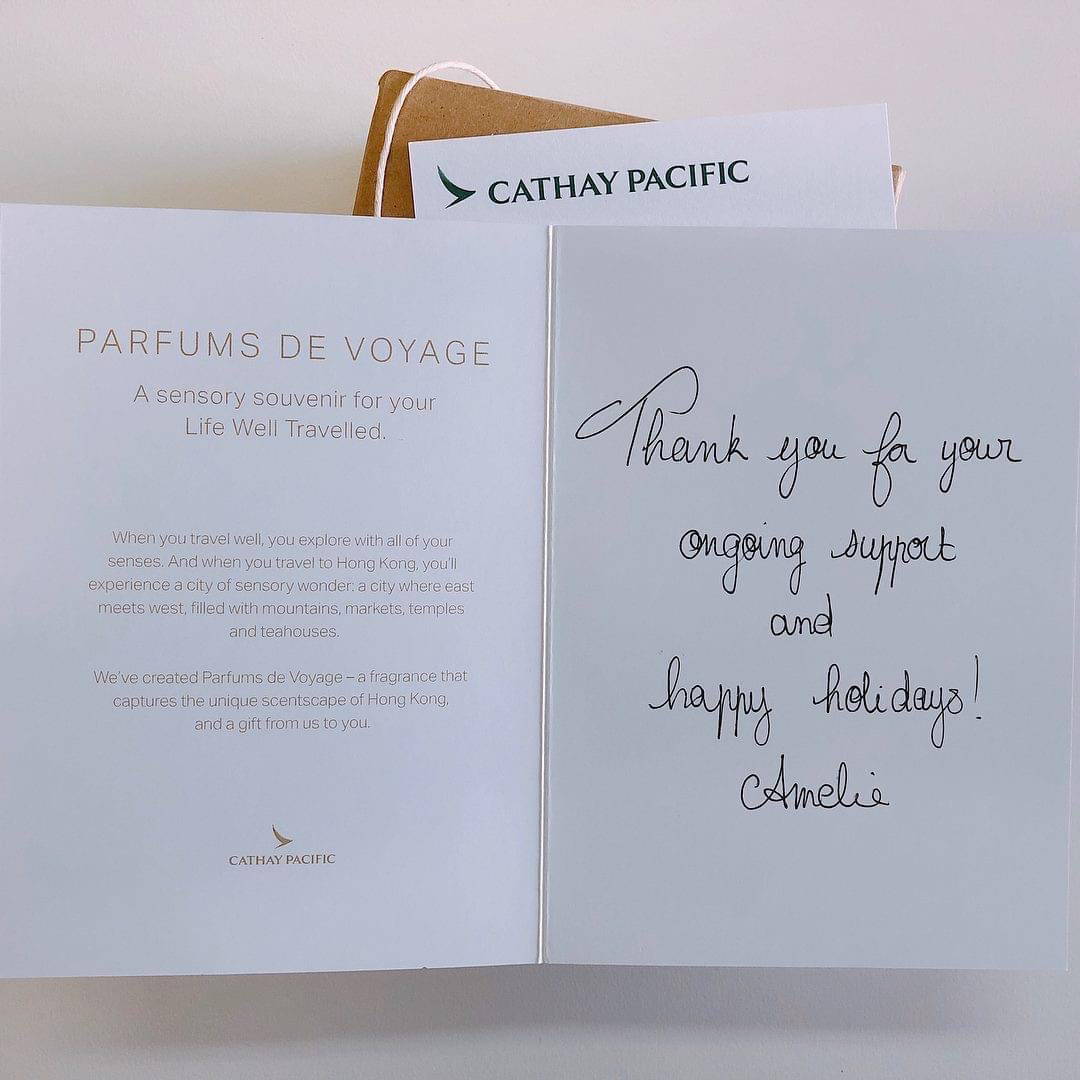 CATHAY PACIFIC
PARFUMS DE VOYAGE
A sensory souvenir for your
Life Well Travelled.
When you travel well, you explore with all of your
senses. And when you travel to Hong Kong, you'll
experience a city of sensory wonder: a city where east
meets west, filled with mountains, markets, temples
and teahouses.
We've created Parfums de Voyage – a fragrance that
captures the unique scentscape of Hong Kong,
and a gift from us to you.
CATHAY PACIFIC
Thank you for your
ongoing support
and
happy holidays!
Amelie